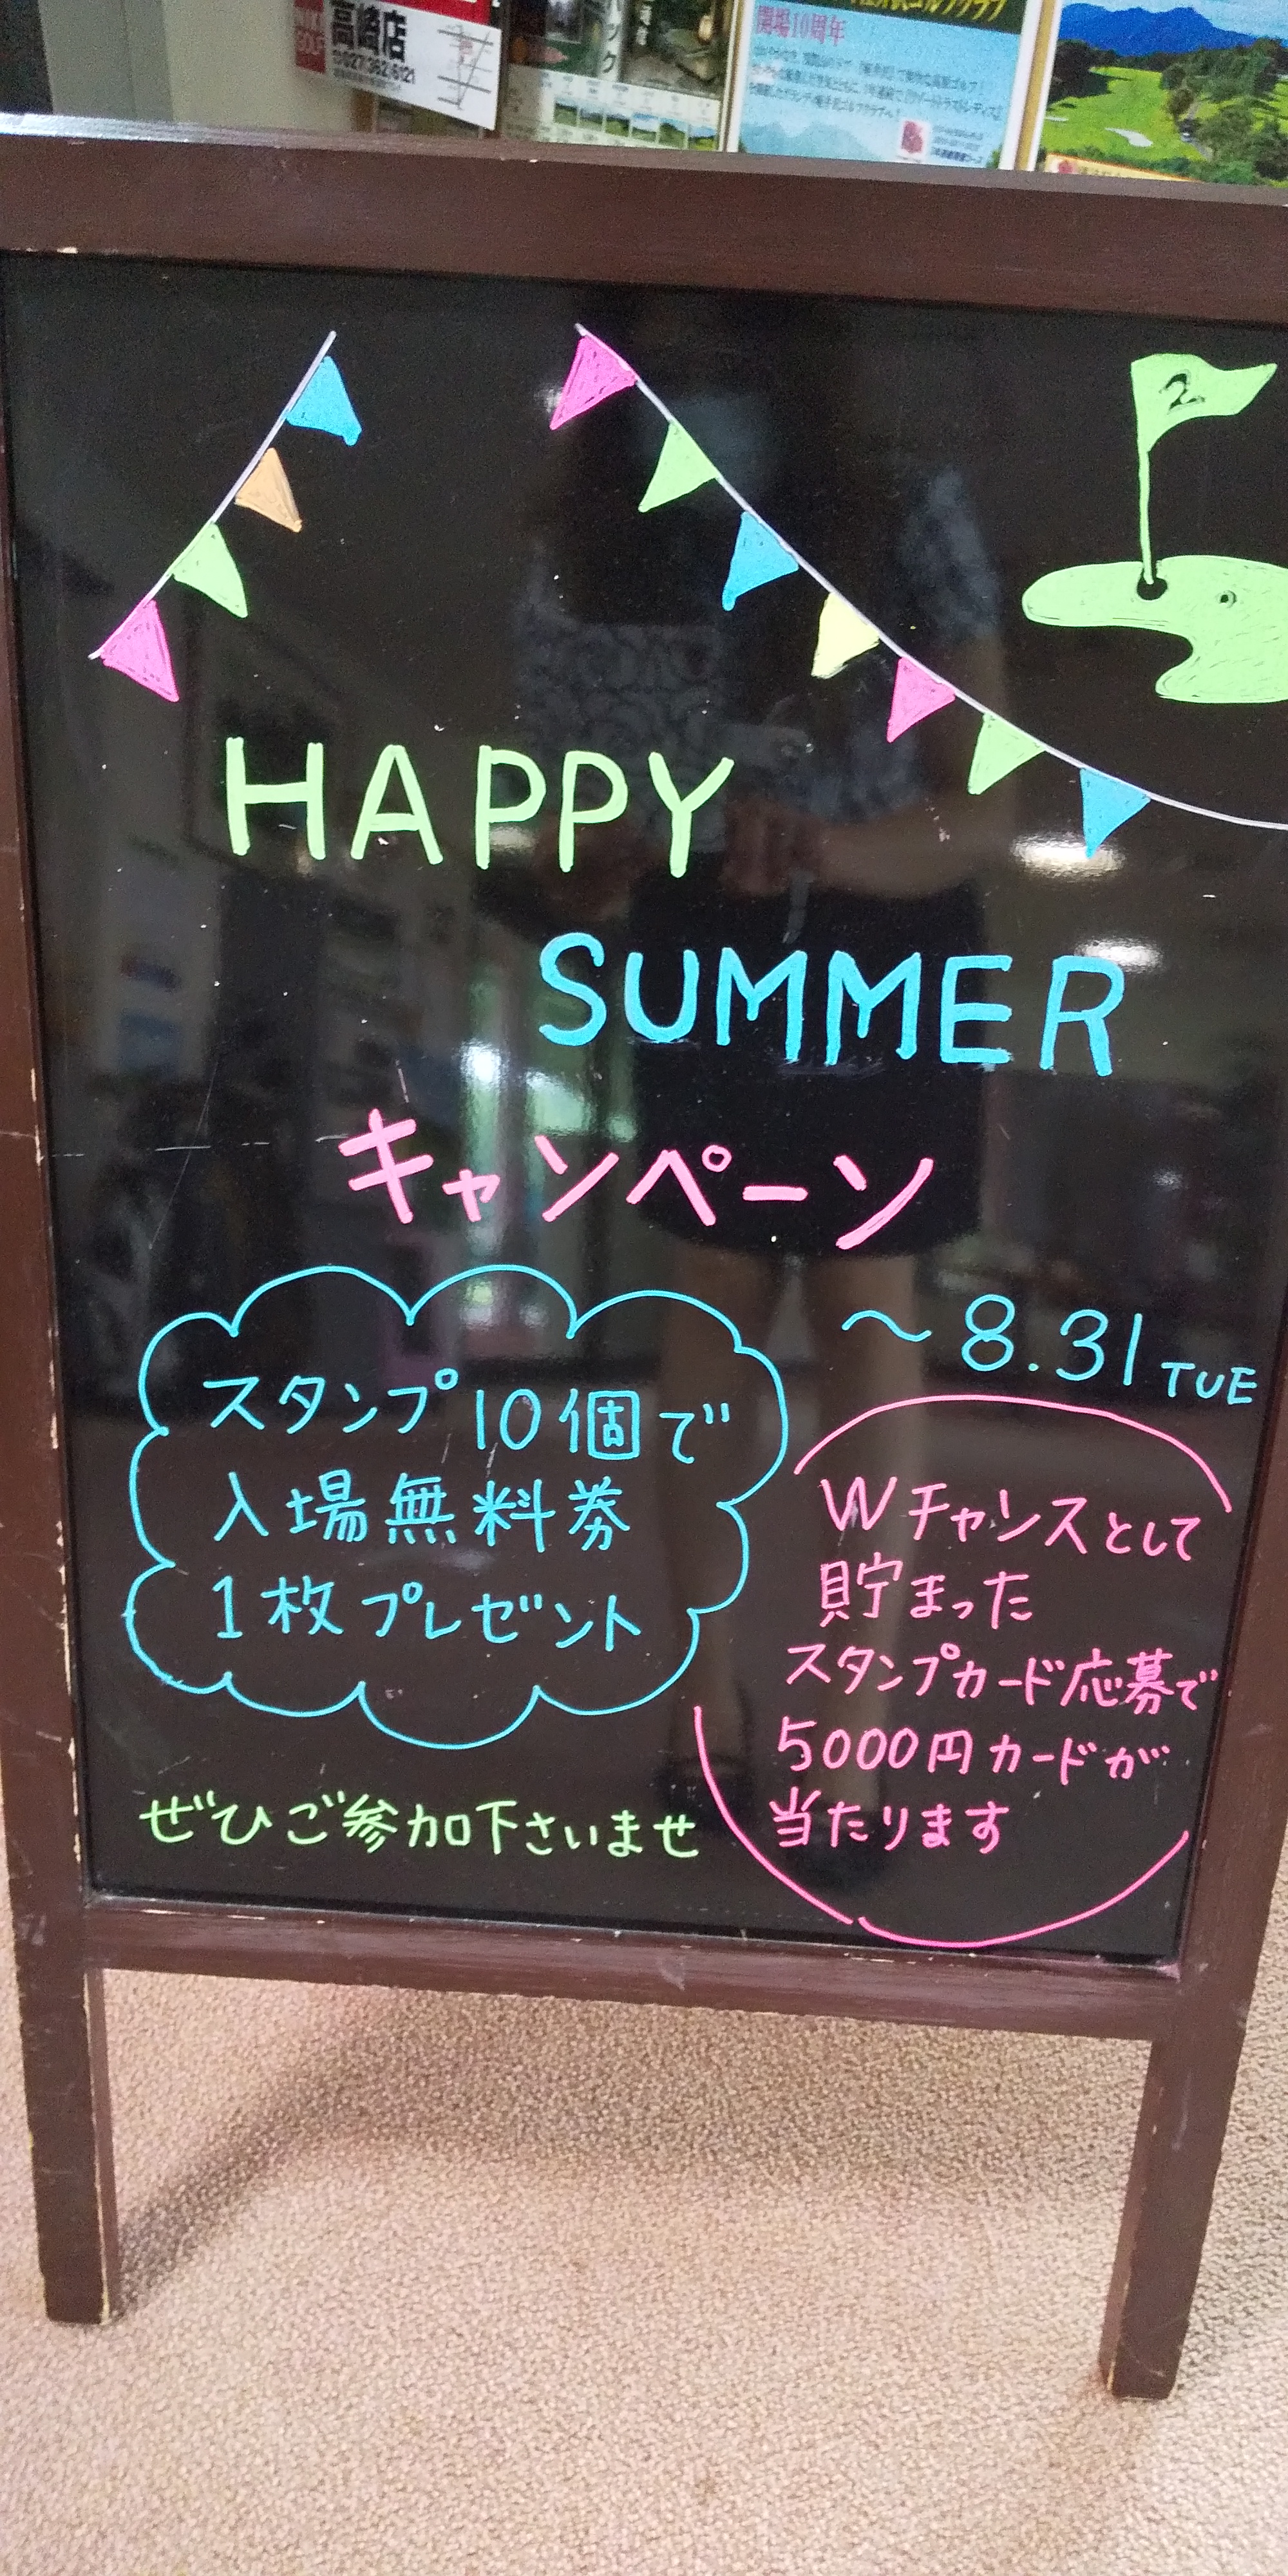 高崎店
027(362)6121
開場10周年
2
HAPPY
SUMMER
キャンペーン
～8.31 TUE
スタンプ10個で
入場無料券
1枚プレゼント
Wチャンスとして
貯まった
スタンプカード応募で
5000円カードが
当たります
ぜひご参加下さいませ